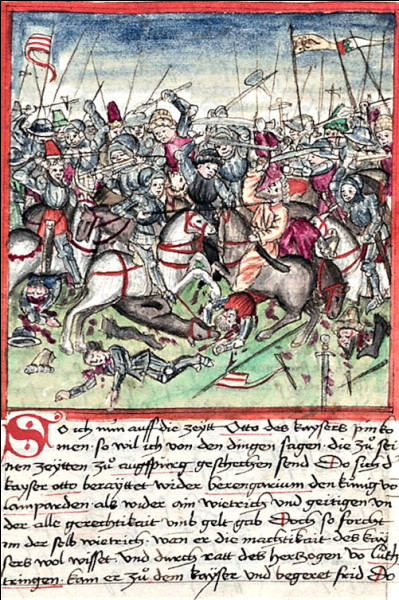 So ich nun auff die zeytt Otto des kaysers pin ko
men · so wil ich von den dingen sagen · die zů sei
nen zeytten zů augspurg geschechen send Do sich d
kayser otto berayttet wider berengarium den künig vō
lamparden als wider ain wietrich und geitigen vn
der alle gerechtikait vmb gelt gab Doch so forcht
im der selb wietrich · wan er die machtikait des kay
sers wol wisset · und durch ratt des herzogen vō luth
tringen · kam er zů dem kayser und begeret frid Do